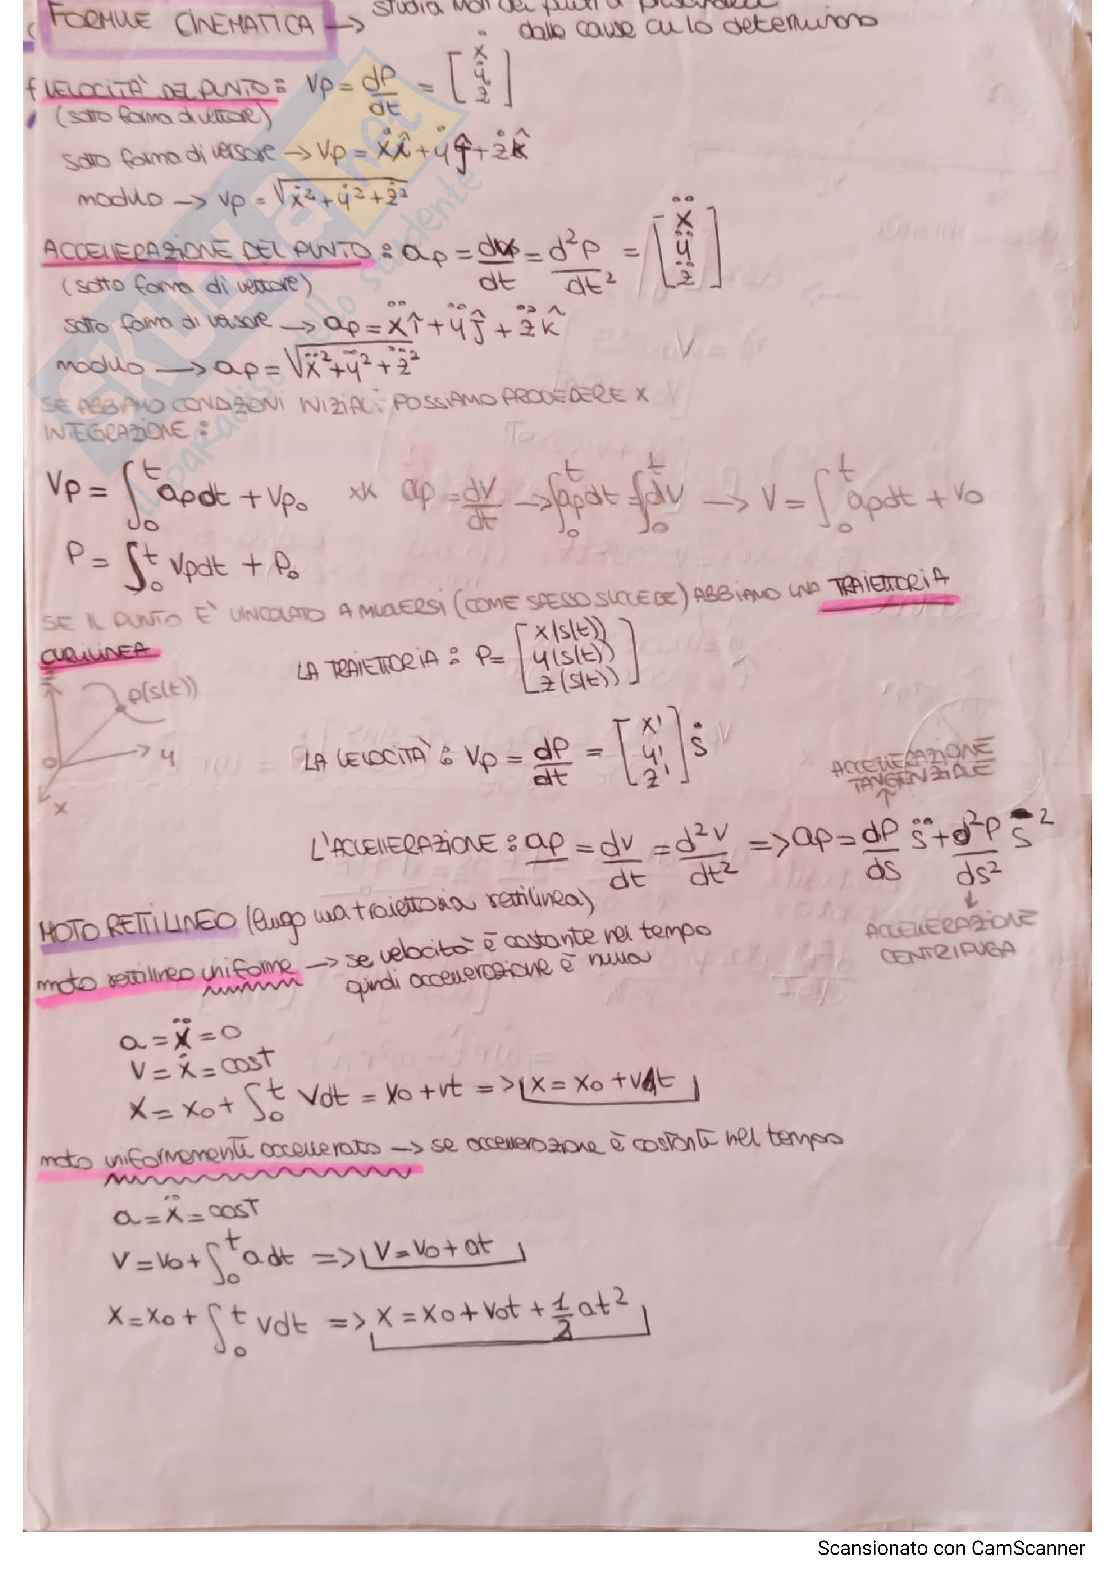 FORMULE CINEMATICA → studia moti dei punti a prescindere
dalle cause che lo determinano
VELOCITÀ DEL PUNTO: Vp = dP/dt = [ẋ ẏ ż]
(sotto forma di vettore)
sotto forma di versore → Vp = ẋî + ẏĵ + żk̂
modulo → vp = √ẋ² + ẏ² + ż²
ACCELLERAZIONE DEL PUNTO: ap = dvp/dt = d²P/dt² = [ẍ ÿ z̈]
(sotto forma di vettore)
sotto forma di versore → ap = ẍî + ÿĵ + z̈k̂
modulo → ap = √ẍ² + ÿ² + z̈²
SE ABBIAMO CONDIZIONI INIZIALI POSSIAMO PROCEDERE X
INTEGRAZIONE:
Vp = ∫₀ᵗ apdt + Vp₀ xk ap = dv/dt → ∫₀ᵗ apdt = ∫₀ᵗ dv → V = ∫₀ᵗ apdt + V₀
P = ∫₀ᵗ Vpdt + P₀
SE IL PUNTO È VINCOLATO A MUOVERSI (COME SPESSO SUCCEDE) ABBIAMO UNA TRAIETTORIA
CURVILINEA
LA TRAIETTORIA: P = [x(s(t)) y(s(t)) z(s(t))]
z
P(s(t))
O
y
x
LA VELOCITÀ: Vp = dP/dt = [x' y' z'] ṡ
ACCELLERAZIONE
TANGENZIALE
↑
L'ACCELLERAZIONE: ap = dv/dt = d²v/dt² => ap = dP/ds s̈ + d²P/ds² ṡ²
↓
ACCELLERAZIONE
CENTRIFUGA
MOTO RETTILINEO (lungo una traiettoria rettilinea)
moto rettilineo uniforme → se velocità è costante nel tempo
quindi accellerazione è nulla
a = ẍ = 0
v = ẋ = cost
x = x₀ + ∫₀ᵗ Vdt = x₀ + vt => x = x₀ + vt
moto uniformemente accellerato → se accellerazione è costante nel tempo
a = ẍ = cost
V = V₀ + ∫₀ᵗ adt => V = V₀ + at
x = x₀ + ∫₀ᵗ vdt => x = x₀ + V₀t + 1/2 at²
Scansionato con CamScanner